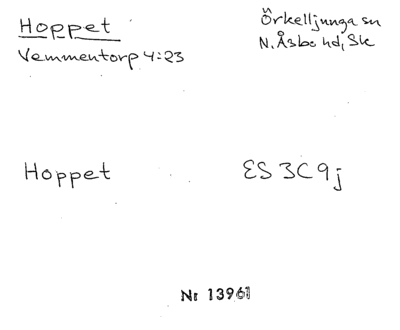 Hoppet
Vemmentorp 4:23
Örkelljunga sn
N. Åsbo hd, Sk
Hoppet
ES 3C9j
Nr 13961